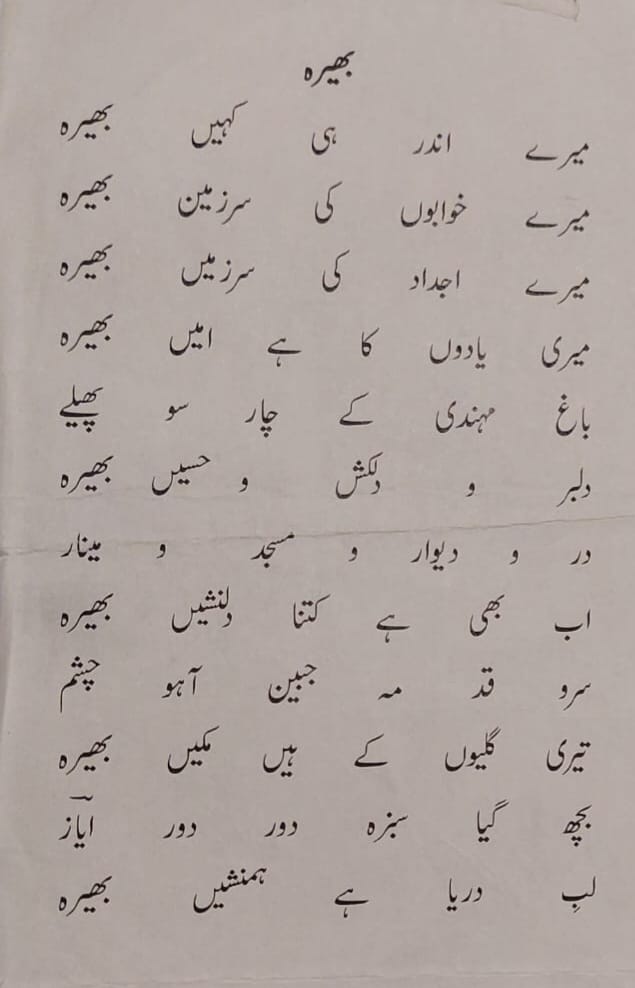 بھیرہ
میرے اندر ہی کہیں بھیرہ
میرے خوابوں کی سرزمین بھیرہ
میرے اجداد کی سرزمیں بھیرہ
میری یادوں کا ہے امیں بھیرہ
باغ مہندی کے چار سو پھیلے
دلبر و دلکش و حسیں بھیرہ
در و دیوار و مسجد و مینار
اب بھی ہے کتنا دلنشیں بھیرہ
سرو قد مہ جبین آہو چشم
تیری گلیوں کے ہیں مکیں بھیرہ
بچھ گیا سبزہ دور دور ایازؔ
لبِ دریا ہے ہمنشیں بھیرہ